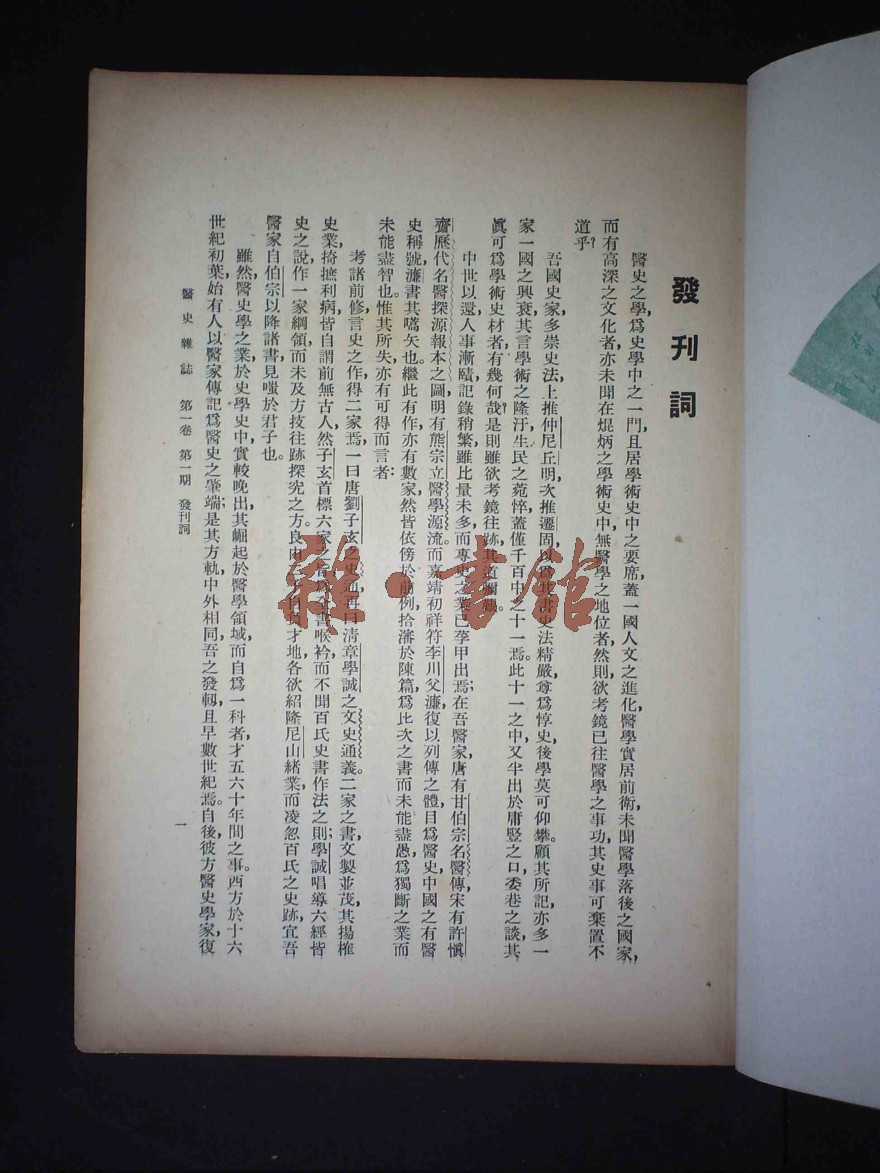 發刊詞
醫史之學，爲史學中之一門，且居學術史中之要席，蓋一國人文之進化，醫學實居前衛，未聞醫學落後之國家，
而有高深之文化者，亦未聞在焜炳之學術史中，無醫學之地位者，然則欲考鏡已往醫學之事功，其史事可棄置不
道乎？
吾國史家，多崇史法，上推仲尼丘明，次推遷固，以爲其書史法精嚴，尊爲惇史，後學莫可仰攀。顧其所記，亦多一
家一國之興衰，其言學術之隆汙，生民之菀悴，蓋僅千百中之十一焉。此十一之中，又半出於庸豎之口，委巷之談，其
眞可爲學術史材者，有幾何哉？是則雖欲考鏡往跡，其道
中世以還，人事漸賾，記錄稍繁，雖比量未多，而專史之業，已荸甲出焉；在吾醫家，唐有甘伯宗名醫傳，宋有許愼
齋歷代名醫探源報本之圖，明有熊宗立醫學源流。而嘉靖初祥符李川父濂，復以列傳之體，目爲醫史，中國之有醫
史稱號，濂書其嚆矢也。繼此有作，亦有數家，然皆依傍於前例，拾瀋於陳篇，爲比次之書，而未能盡愚，爲獨斷之業，而
未能盡智也。惟其所失，亦有可得而言者：
考諸前修，言史之作，得二家焉，一曰唐劉子玄之史通，再曰清章學誠之文史通義。二家之書，文製並茂，其揚榷
史業，掎摭利病，皆自謂前無古人，然子玄首標六家之 喉衿，而不聞百氏史書作法之則；學誠唱導六經皆
史之說，作一家綱領，而未及方技往跡探究之方。良由 才地，各欲紹隆尼山緒業，而凌忽百氏之史跡，宜吾
醫家自伯宗以降諸書，見嗤於君子也。
雖然，醫史學之業，於史學史中，實較晚出，其崛起於醫學領域，而自爲一科者，才五六十年間之事。西方於十六
世紀初葉，始有人以醫家傳記爲醫史之肇端；是其方軌，中外相同，吾之發軔，且早數世紀焉。自後，彼方醫史學家，復
醫史雜誌 第一卷 第一期 發刊詞
一
雜·書館